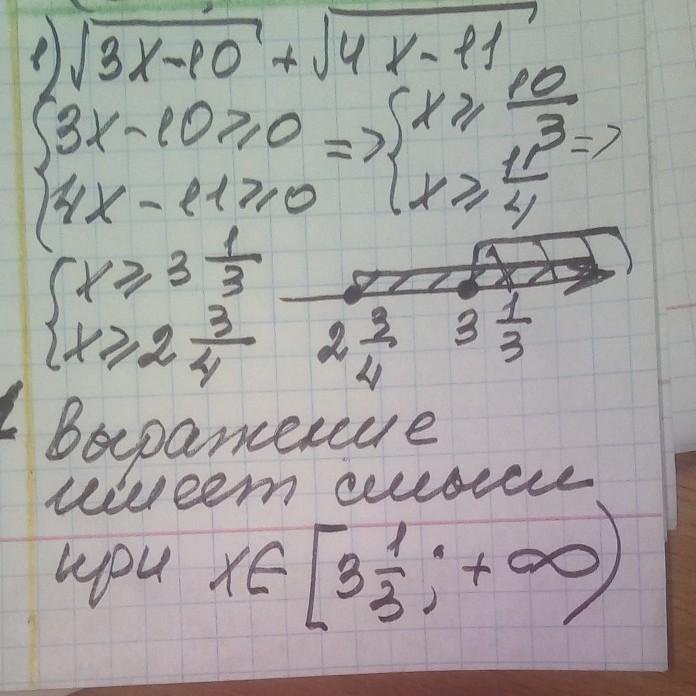 1) √3x-10 + √4x-11
{3x-10≥0 => {x≥10/3 =>
{4x-11≥0 {x≥11/4
{x≥3 1/3
{x≥2 3/4
2 3/4 3 1/3
Выражение
имеет смысл
при x∈[3 1/3; +∞)